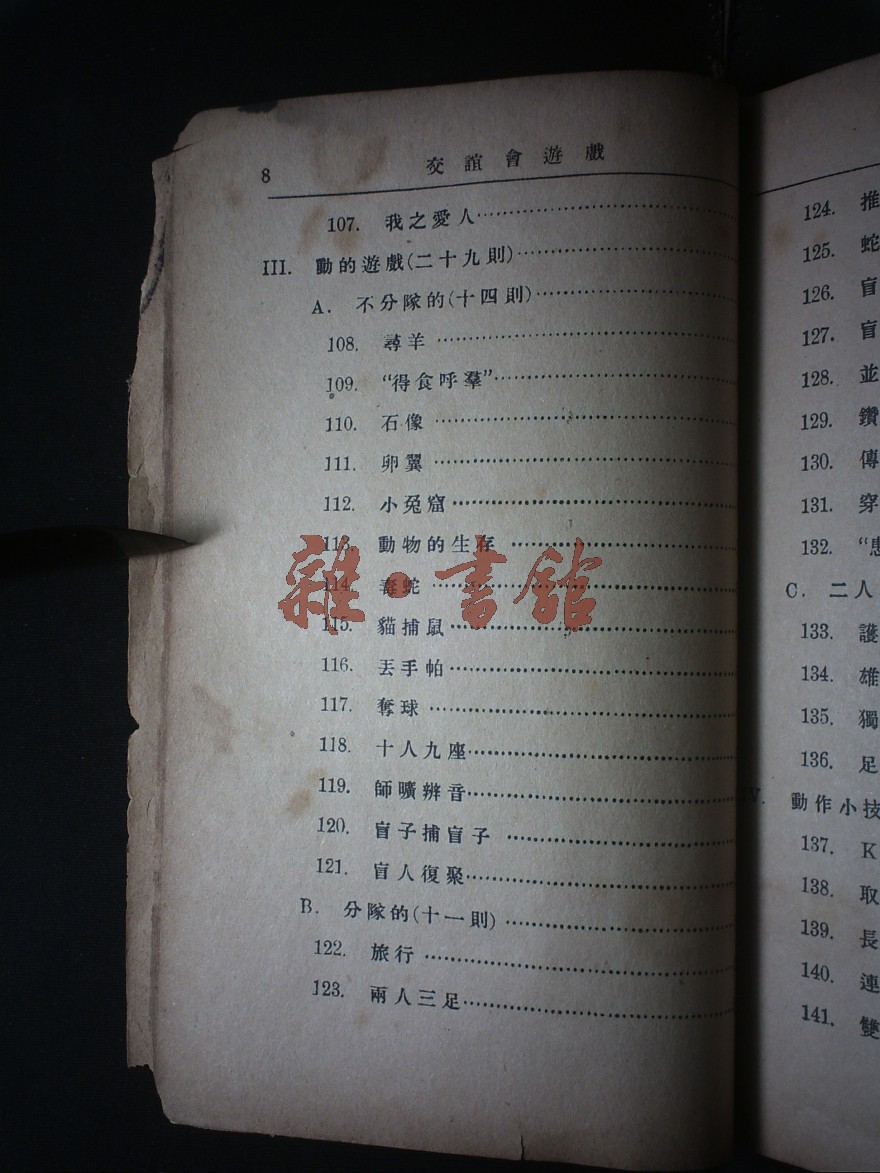 8
交誼會遊戲
107. 我之愛人…………
III. 動的遊戲(二十九則)…………
A. 不分隊的(十四則)…………
108. 尋羊…………
109. “得食呼羣”…………
110. 石像…………
111. 卵翼…………
112. 小兔窟…………
113. 動物的生存…………
114. 毒蛇…………
115. 貓捕鼠…………
116. 丟手帕…………
117. 奪球…………
118. 十人九座…………
119. 師曠辨音…………
120. 盲子捕盲子…………
121. 盲人復聚…………
B. 分隊的(十一則)…………
122. 旅行…………
123. 兩人三足…………
雜·書館
124. 推
125. 蛇
126. 盲
127. 盲
128. 並
129. 鑽
130. 傳
131. 穿
132. “
C. 二人
133. 護
134. 雄
135. 獨
136. 足
V. 動作小技
137. K
138. 取
139. 長
140. 連
141. 雙